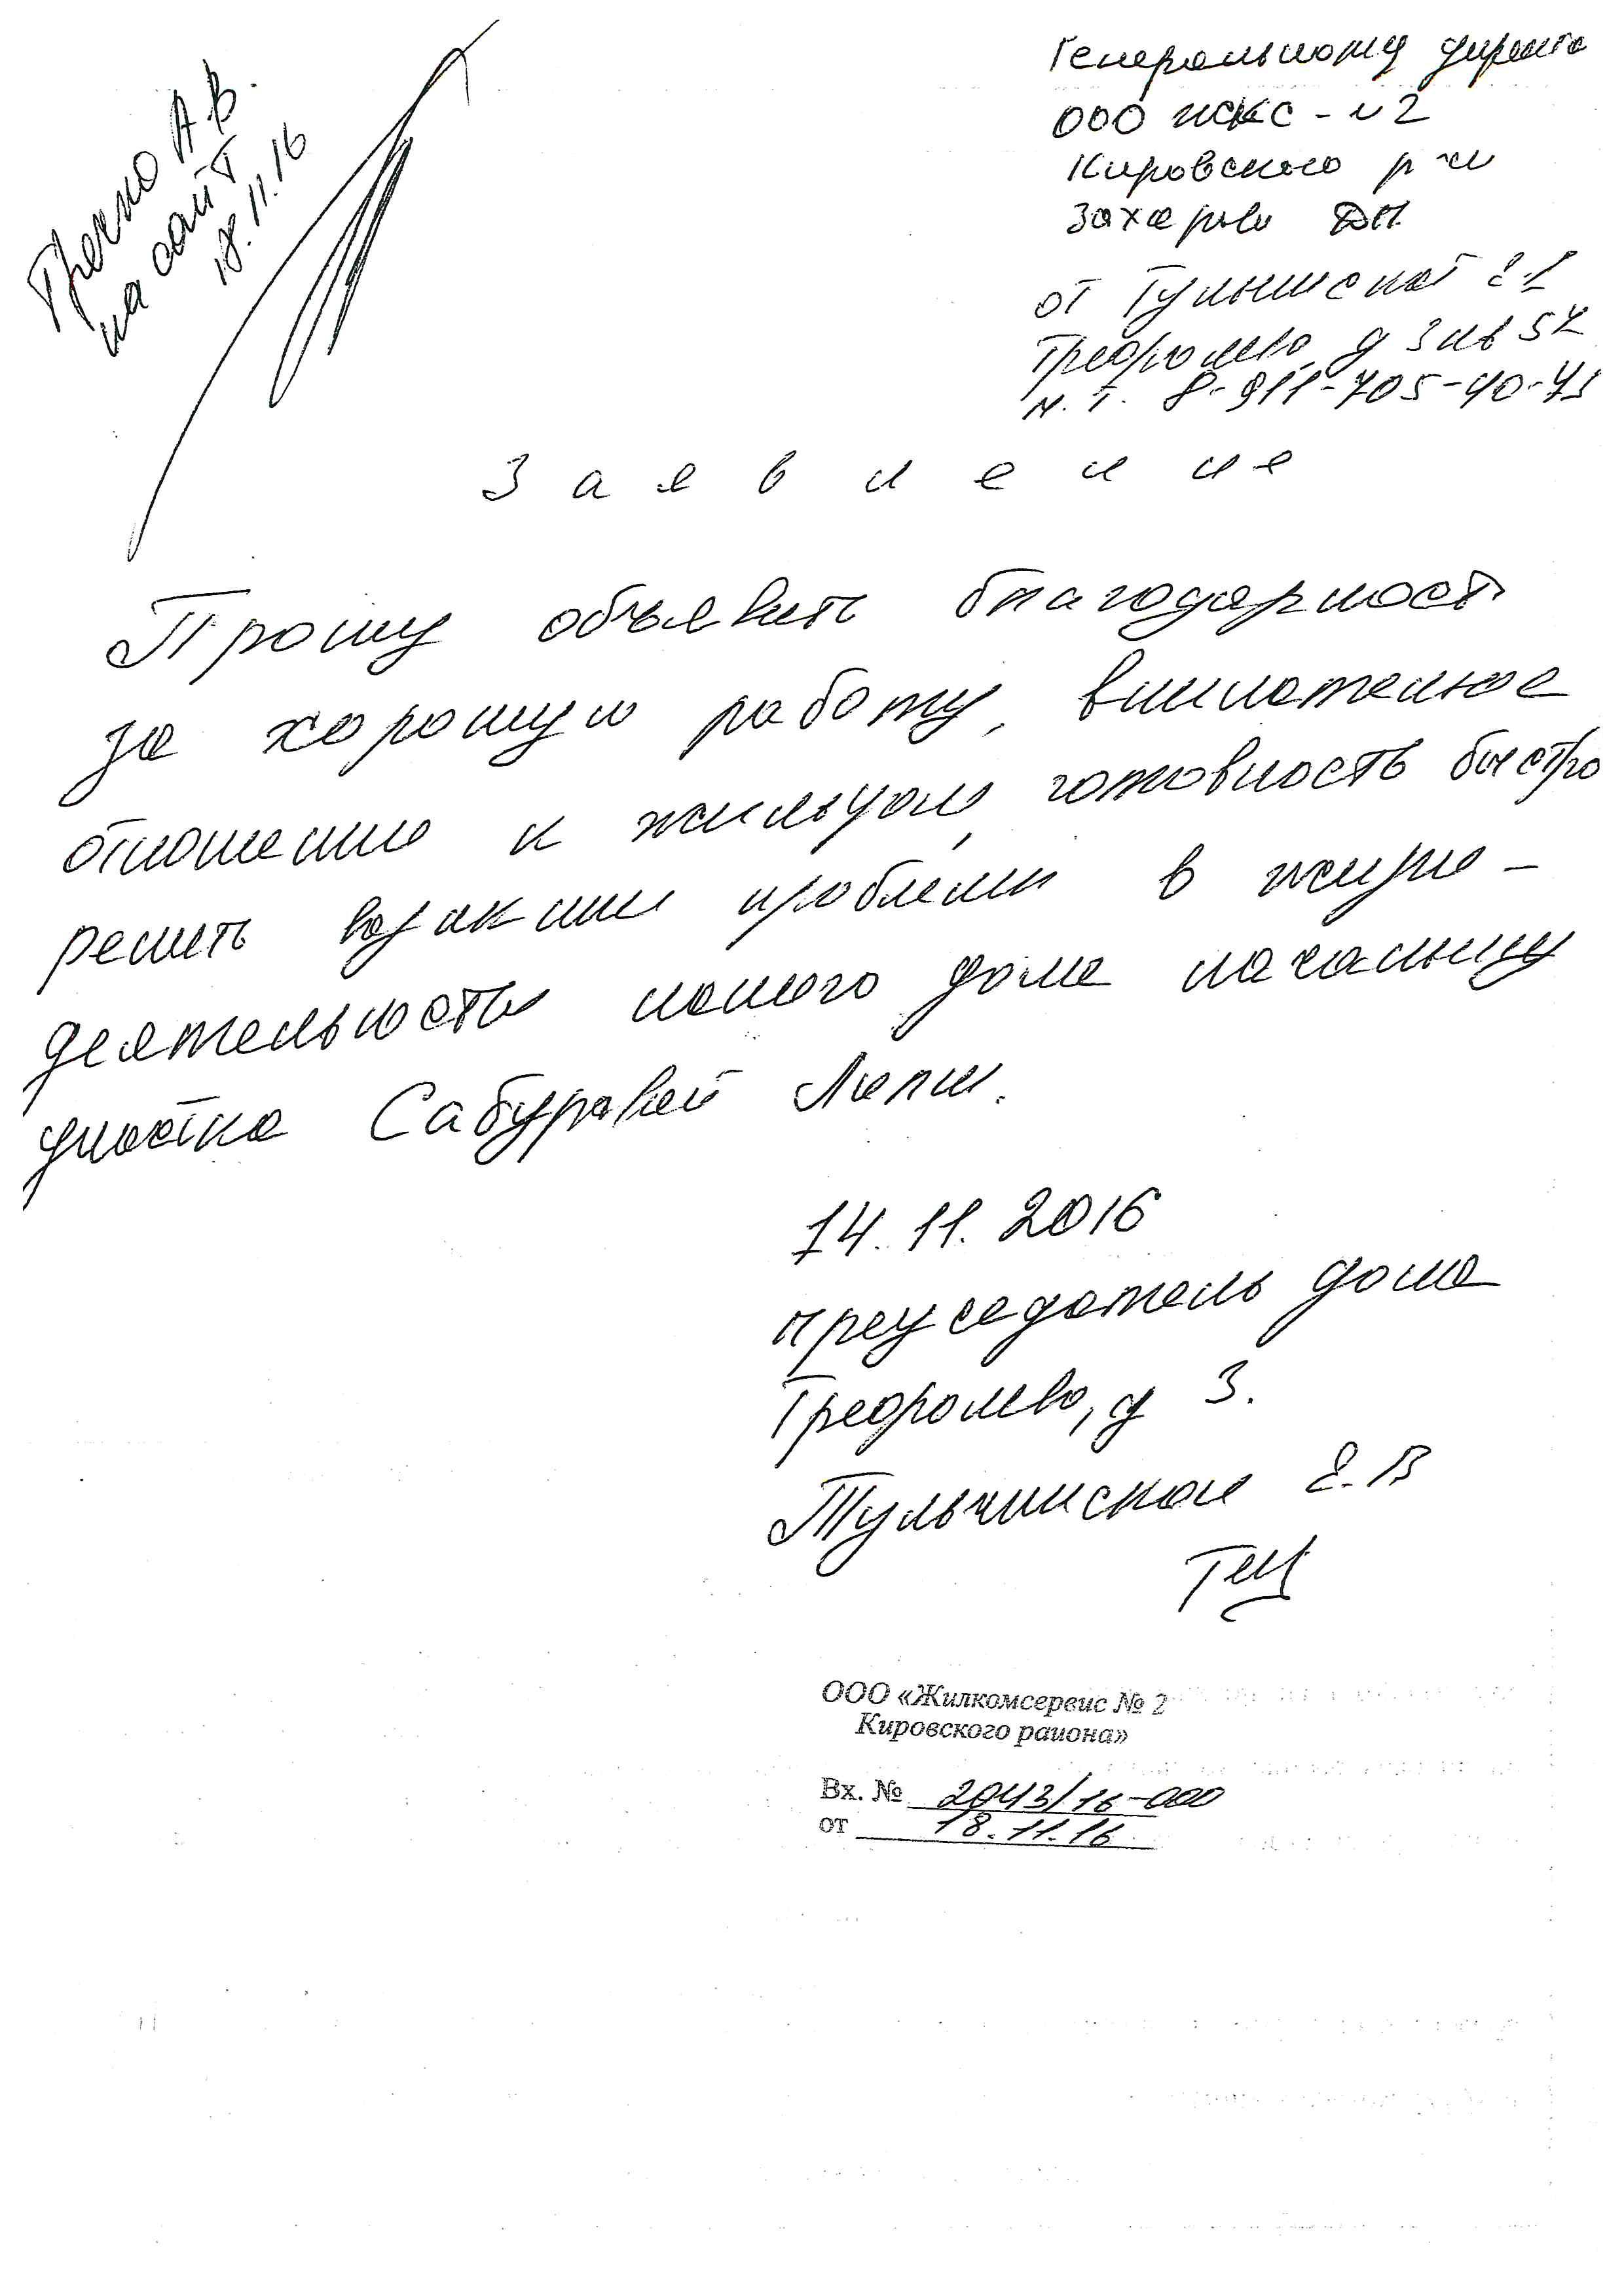 Гречко А.В.
на сайт
18.11.16
Генеральному директо
ООО ЖКС - N 2
Кировского р-н
Захарову
от Тульчинской
Трефолева, д 3 кв 54
м.т. 8-911-705-40-
Заявление
Прошу объявить благодарность
за хорошую работу, внимательное
отношение к жильцам, готовность быстро
решить всякие проблемы в жизне-
деятельности нашего дома начальнику
участка Сабуровой Лилии.
14.11.2016
председатель дома
Трефолева, д 3.
Тульчинская Е.В
ООО «Жилкомсервис № 2
Кировского района»
Вх. № 2043/16-000
от 18.11.16